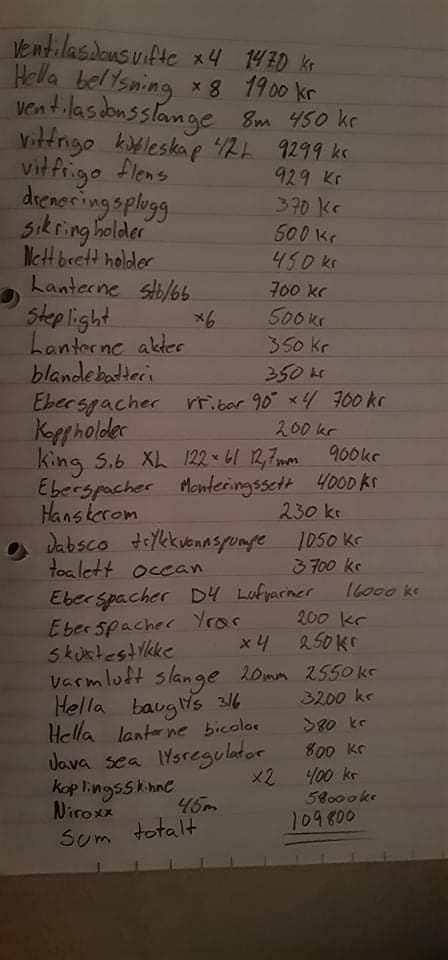 ventilasdonsvifte x4 1470 kr
Hella belysning x8 1900 kr
ventilasdonsslange 8m 450 kr
vitfrigo kjøleskap 42L 9299 kr
vitfrigo flens 929 kr
dreneringsplugg 370 kr
sikringholder 500 kr
Nettbrett holder 450 kr
Lanterne stb/bb 700 kr
steplight x6 500kr
Lanterne akter 350 kr
blandebatteri 350 kr
Eberspacher vr.bar 90° x4 700 kr
Koppholder 200 kr
king S.b XL 122 x 61 12,7mm 900kr
Eberspacher Monteringssett 4000kr
Hanskerom 230 kr
Jabsco trykkvannspumpe 1050 kr
toalett ocean 3700 kr
Eberspacher D4 Lufvarmer 16000 kr
Eberspacher Yrør 200 kr
skjøtestykke x4 250kr
varmluft slange 20mm 2550kr
Hella bauglys 316 3200 kr
Hella lanterne bicolor 380 kr
Java sea lysregulator 800 kr
koplingsskinne x2 400 kr
Niroxx 45m 58000kr
Sum totalt 109800